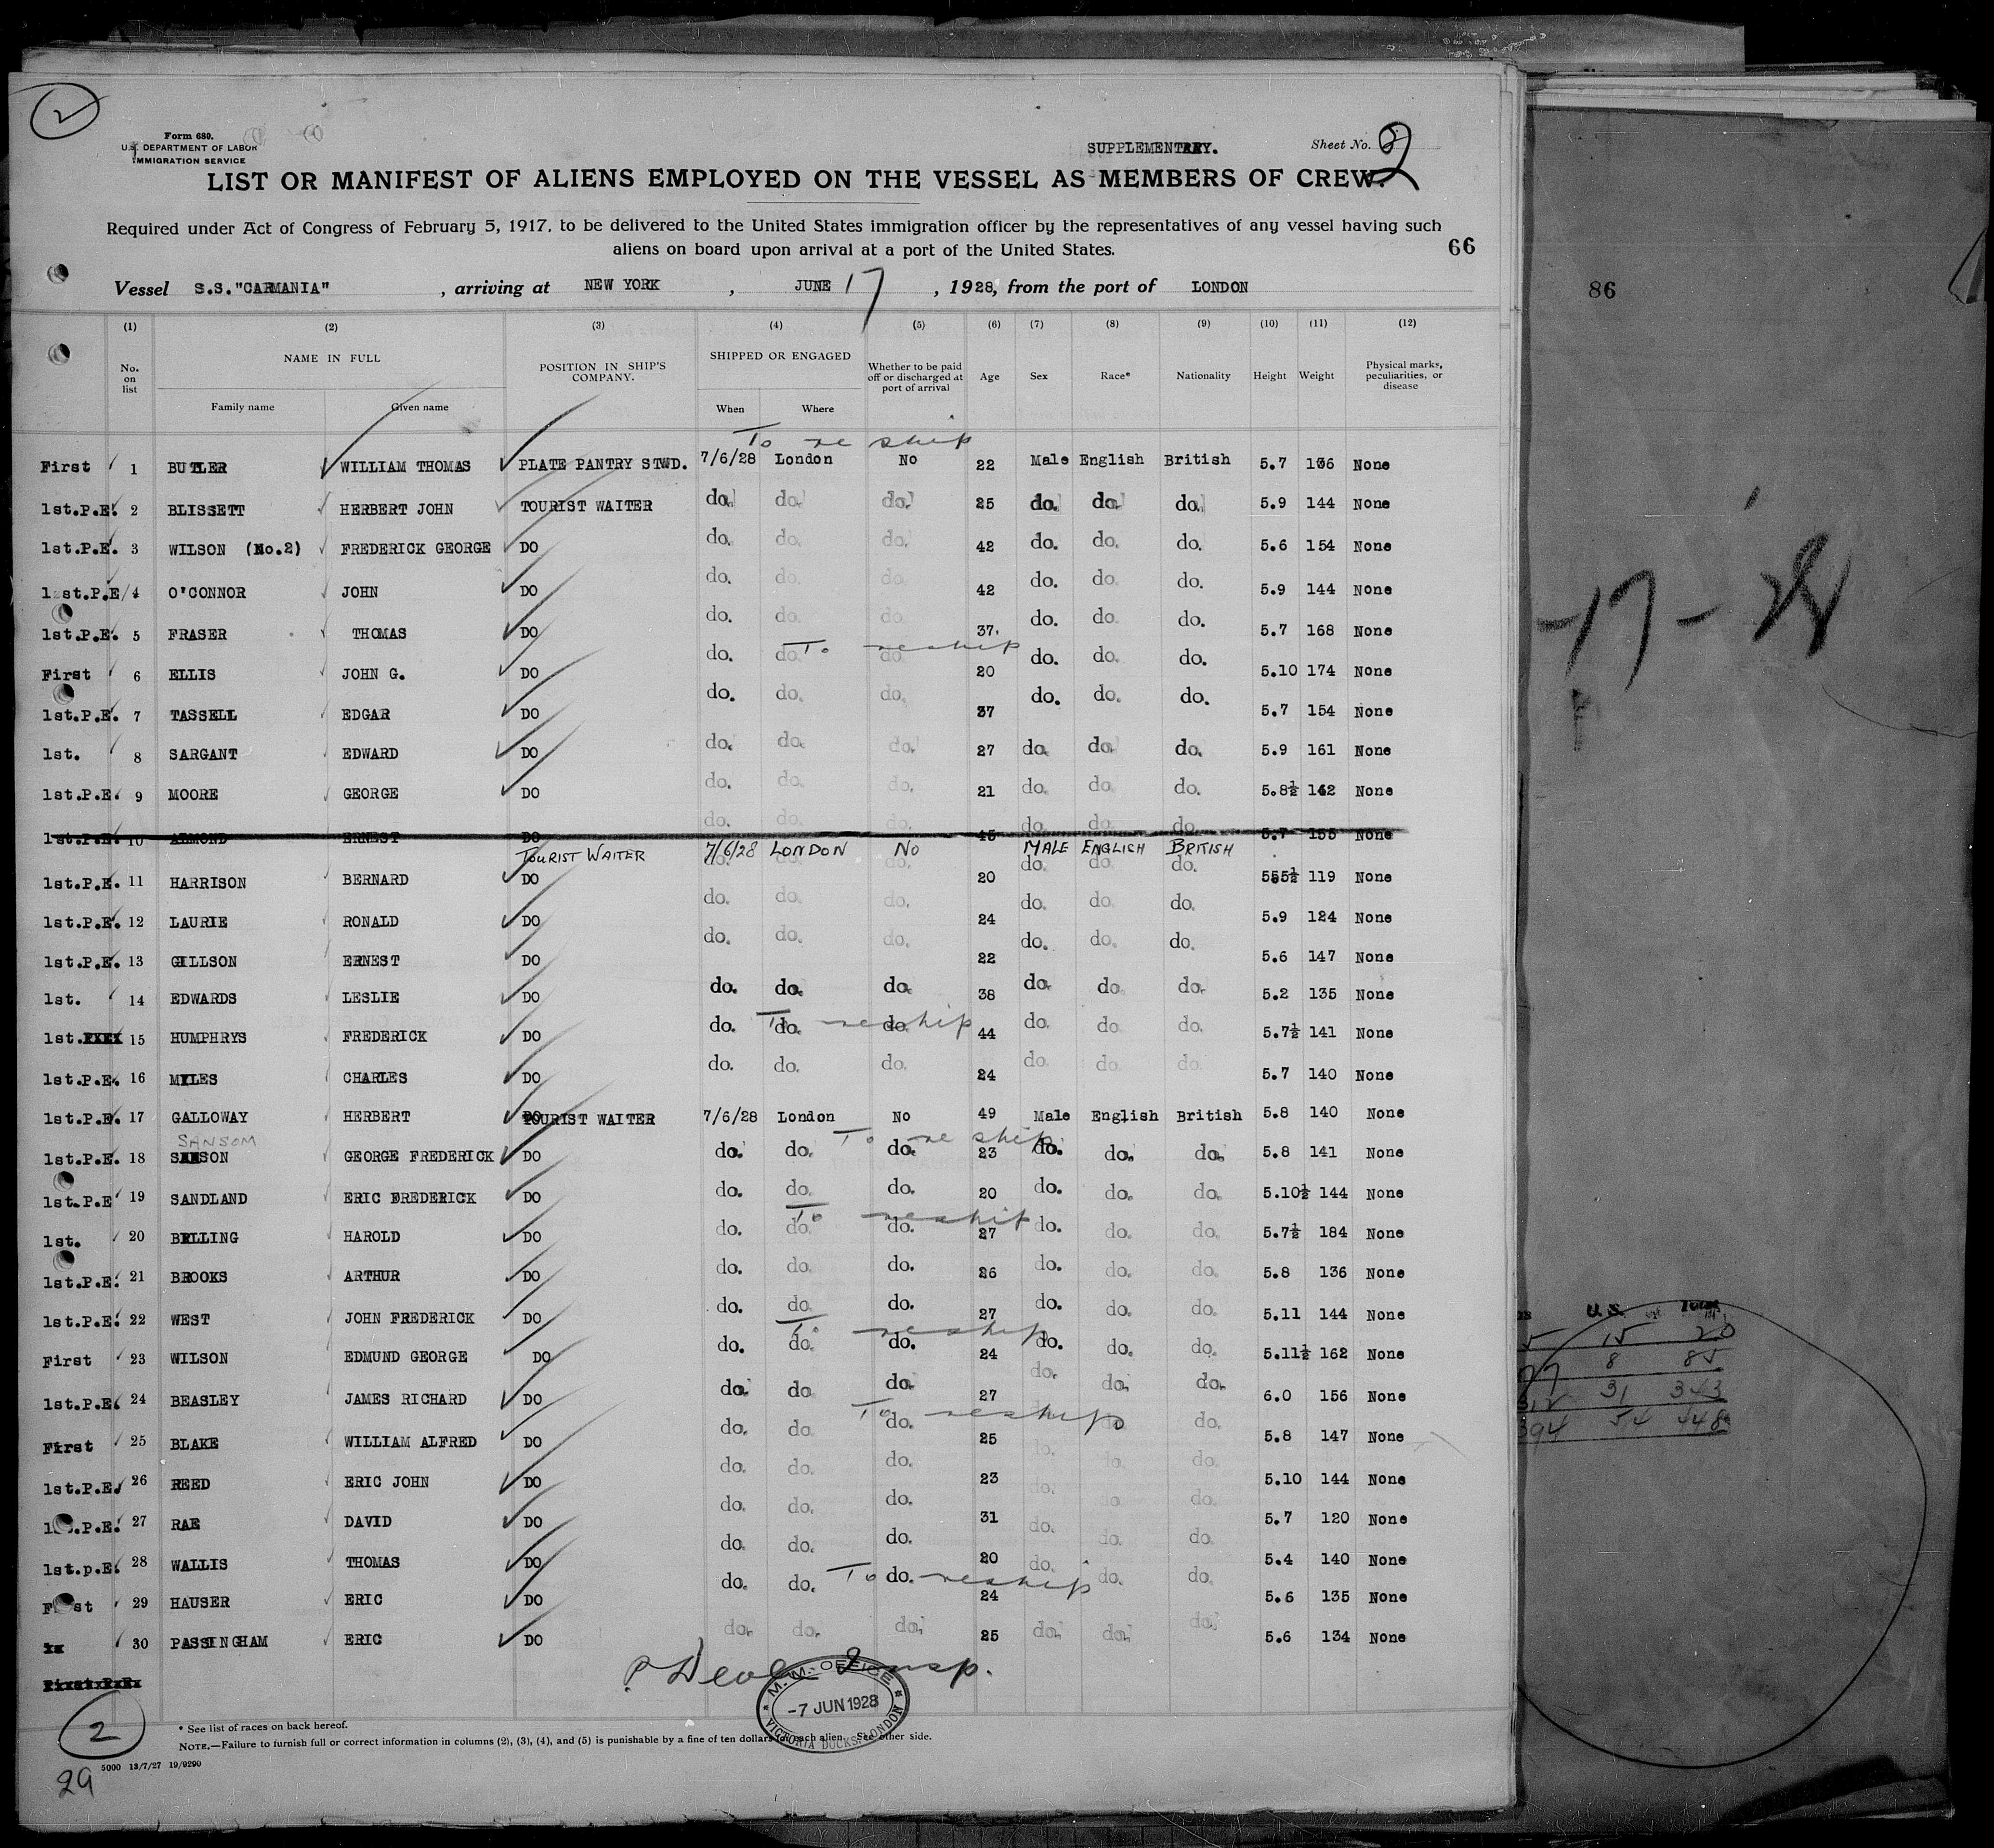 2
Form 680.
U.S. DEPARTMENT OF LABOR
IMMIGRATION SERVICE
SUPPLEMENTARY.
Sheet No. 2
LIST OR MANIFEST OF ALIENS EMPLOYED ON THE VESSEL AS MEMBERS OF CREW.
Required under Act of Congress of February 5, 1917, to be delivered to the United States immigration officer by the representatives of any vessel having such
aliens on board upon arrival at a port of the United States.
66
86
Vessel S.S."CARMANIA" , arriving at NEW YORK , JUNE 17 , 1928, from the port of LONDON
(1) (2) (3) (4) (5) (6) (7) (8) (9) (10) (11) (12)
No. on list NAME IN FULL POSITION IN SHIP'S COMPANY. SHIPPED OR ENGAGED Whether to be paid off or discharged at port of arrival Age Sex Race* Nationality Height Weight Physical marks, peculiarities, or disease
Family name Given name When Where
To re ship
First 1 BUTLER WILLIAM THOMAS PLATE PANTRY STWD. 7/6/28 London No 22 Male English British 5.7 136 None
1st.P.E. 2 BLISSETT HERBERT JOHN TOURIST WAITER do. do. do. 25 do. do. do. 5.9 144 None
1st.P.E. 3 WILSON (No.2) FREDERICK GEORGE DO do. do. do. 42 do. do. do. 5.6 154 None
1st.P.E 4 O'CONNOR JOHN DO do. do. do. 42 do. do. do. 5.9 144 None
1st.P.E. 5 FRASER THOMAS DO do. do. do. 37. do. do. do. 5.7 168 None
To reship
First 6 ELLIS JOHN G. DO do. do. do. 20 do. do. do. 5.10 174 None
1st.P.E. 7 TASSELL EDGAR DO do. do. do. 37 do. do. do. 5.7 154 None
1st. 8 SARGANT EDWARD DO do. do. do. 27 do. do. do. 5.9 161 None
1st.P.E. 9 MOORE GEORGE DO do. do. do. 21 do. do. do. 5.8½ 142 None
1st.P.E. 10 ALMOND ERNEST DO do. do. do. 45 do. do. do. 5.7 155 None
TOURIST WAITER 7/6/28 LONDON NO MALE ENGLISH BRITISH
1st.P.E. 11 HARRISON BERNARD DO do. do. do. 20 do. do. do. 555½ 119 None
1st.P.E. 12 LAURIE RONALD DO do. do. do. 24 do. do. do. 5.9 124 None
1st.P.E. 13 GILLSON ERNEST DO do. do. do. 22 do. do. do. 5.6 147 None
1st. 14 EDWARDS LESLIE DO do. do. do. 38 do. do. do. 5.2 135 None
To reship
1st. 15 HUMPHRYS FREDERICK DO do. do. do. 44 do. do. do. 5.7½ 141 None
1st.P.E. 16 MYLES CHARLES DO do. do. do. 24 do. do. do. 5.7 140 None
1st.P.E. 17 GALLOWAY HERBERT TOURIST WAITER 7/6/28 London No 49 Male English British 5.8 140 None
SANSOM To re ship
1st.P.E. 18 SAMSON GEORGE FREDERICK DO do. do. do. 23 do. do. do. 5.8 141 None
1st.P.E 19 SANDLAND ERIC FREDERICK DO do. do. do. 20 do. do. do. 5.10½ 144 None
To reship
1st. 20 BELLING HAROLD DO do. do. do. 27 do. do. do. 5.7½ 184 None
1st.P.E. 21 BROOKS ARTHUR DO do. do. do. 26 do. do. do. 5.8 136 None
1st.P.E. 22 WEST JOHN FREDERICK DO do. do. do. 27 do. do. do. 5.11 144 None
To reship
First 23 WILSON EDMUND GEORGE DO do. do. do. 24 do. do. do. 5.11½ 162 None
1st.P.E. 24 BEASLEY JAMES RICHARD DO do. do. do. 27 do. do. do. 6.0 156 None
To reship
First 25 BLAKE WILLIAM ALFRED DO do. do. do. 25 do. do. 5.8 147 None
1st.P.E. 26 REED ERIC JOHN DO do. do. do. 23 do. do. 5.10 144 None
1st.P.E. 27 RAE DAVID DO do. do. do. 31 do. do. do. 5.7 120 None
1st.p.E. 28 WALLIS THOMAS DO do. do. do. 20 do. do. do. 5.4 140 None
To reship
First 29 HAUSER ERIC DO do. do. do. 24 do. do. 5.6 135 None
30 PASSINGHAM ERIC DO do. do. do. 25 do. do. do. 5.6 134 None
Insp.
M.M. OFFICE
-7 JUN 1928
VICTORIA DOCKS, LONDON
2
* See list of races on back hereof.
NOTE.—Failure to furnish full or correct information in columns (2), (3), (4), and (5) is punishable by a fine of ten dollars for each alien. See other side.
5000 13/7/27 19/9290
29
-17-28
U.S. Total
5 15 20
77 8 85
312 31 343
394 54 448